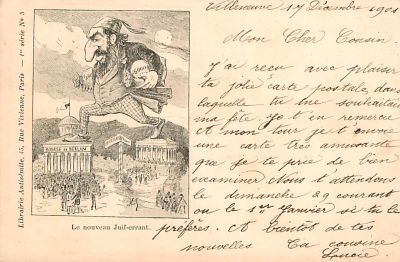 Villeneuve 17 Décembre 1901
Mon Cher Cousin.
J'ai reçu avec plaisir
ta jolie carte postale dans
laquelle tu me souhaitais
ma fête. Je t'en remercie
et à mon tour je t'envoie
une carte très amusante
que je te prie de bien
examiner. Nous t'attendons
le dimanche 29 courant
ou le 1er Janvier si tu le
préfères. A bientôt de tes
nouvelles Ta cousine
Lucie
Librairie Antisémite, 45, Rue Vivienne, Paris — 1re série No 5
BOURSE DE BERLIN
Le nouveau Juif-errant.